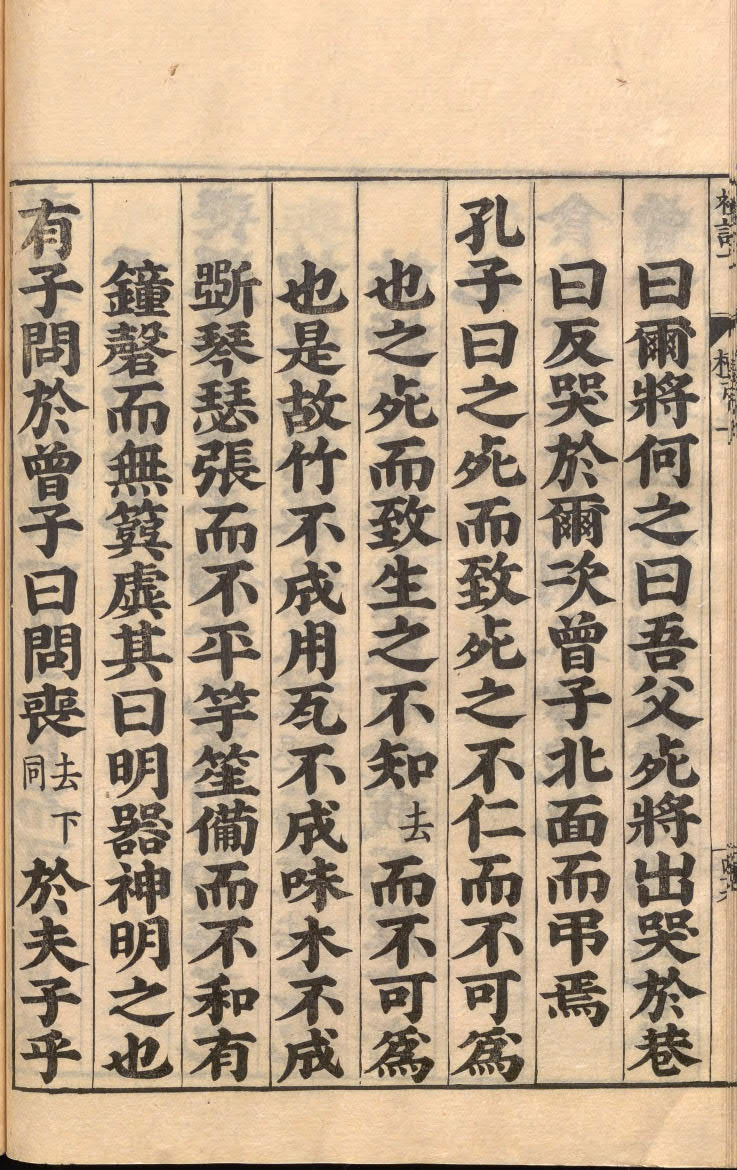 曰爾將何之曰吾父死將出哭於巷
曰反哭於爾次曾子北面而弔焉
孔子曰之死而致死之不仁而不可爲
也之死而致生之不知去而不可爲
也是故竹不成用瓦不成味木不成
斲琴瑟張而不平竽笙備而不和有
鐘磬而無簨虡其曰明器神明之也
有子問於曾子曰問喪去下同於夫子乎